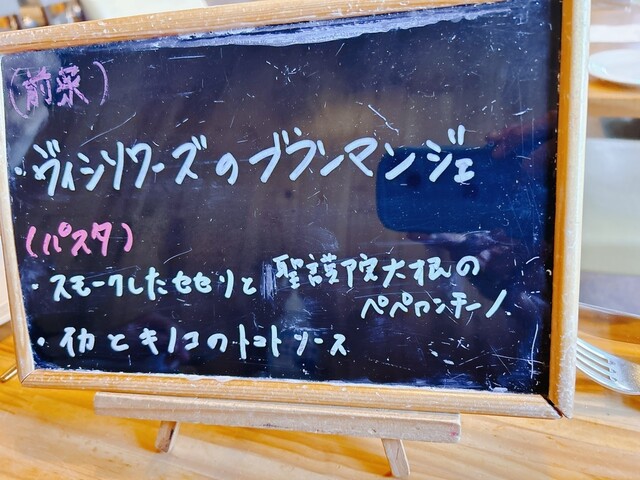 (前菜)
・ヴィシソワーズのブランマンジェ
(パスタ)
・スモークしたセセリと聖護院大根の
ペペロンチーノ
・イカとキノコのトマトソース